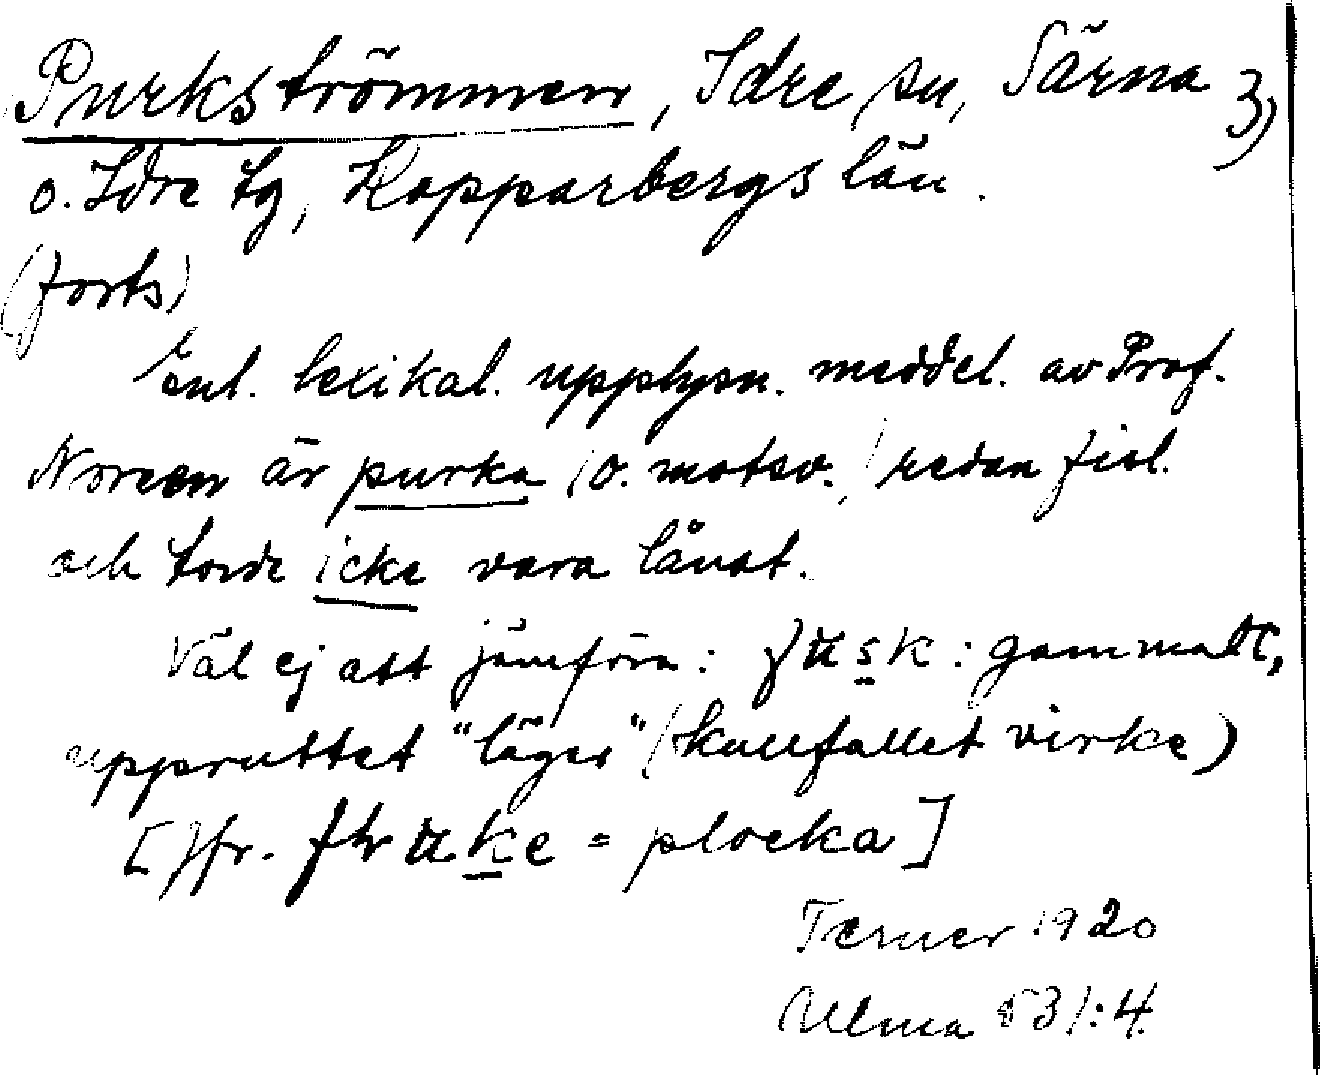 Purkströmmen, Idre sn, Särna 3)
o. Idre tg, Kopparbergs län.
(forts)
Enl. lexikal. upplysn. meddel. av Prof.
Noreen är purka (o. motsv.) redan fisl.
och torde icke vara lånat.
Väl ej att jämföra: : gammalt,
uppruttet "läger" (kullfallet virke)
[Jfr. = plocka]
Terner 1920
Ulma 531:4.